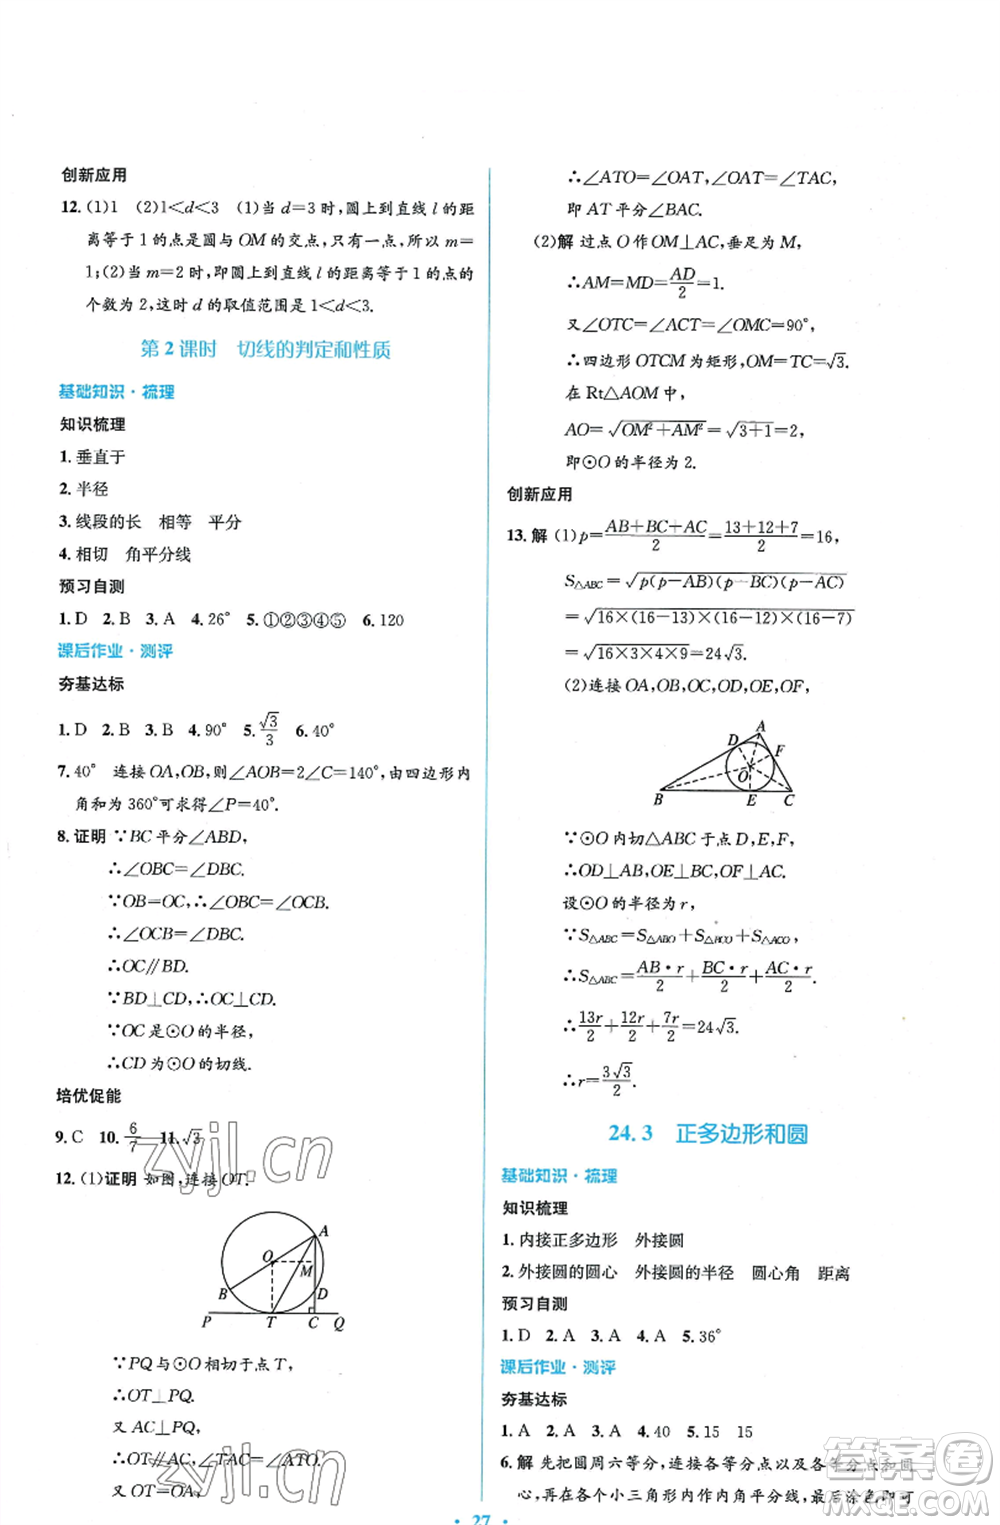 创新应用
12. (1)1 (2)1<d<3 (1)当 d=3 时,圆上到直线 l 的距
离等于 1 的点是圆与 OM 的交点,只有一点,所以 m=
1;(2)当 m=2 时,即圆上到直线 l 的距离等于 1 的点的
个数为 2,这时 d 的取值范围是 1<d<3.
第 2 课时 切线的判定和性质
基础知识·梳理
知识梳理
1. 垂直于
2. 半径
3. 线段的长 相等 平分
4. 相切 角平分线
预习自测
1. D 2. B 3. A 4. 26° 5. ①②③④⑤ 6. 120
课后作业·测评
夯基达标
1. D 2. B 3. B 4. 90° 5. √3/3 6. 40°
7. 40° 连接 OA,OB,则∠AOB=2∠C=140°,由四边形内
角和为 360°可求得∠P=40°.
8. 证明 ∵BC 平分∠ABD,
∴∠OBC=∠DBC.
∵OB=OC,∴∠OBC=∠OCB.
∴∠OCB=∠DBC.
∴OC∥BD.
∵BD⊥CD,∴OC⊥CD.
∵OC 是⊙O 的半径,
∴CD 为⊙O 的切线.
培优促能
9. C 10. 6/7 11. √3
12. (1)证明 如图,连接 OT.
A
O
M
B
D
P T C Q
∵PQ 与⊙O 相切于点 T,
∴OT⊥PQ.
又 AC⊥PQ,
∴OT∥AC,∴∠TAC=∠ATO.
又 OT=OA,
∴∠ATO=∠OAT,∠OAT=∠TAC,
即 AT 平分∠BAC.
(2)解 过点 O 作 OM⊥AC,垂足为 M,
∴AM=MD=AD/2=1.
又∠OTC=∠ACT=∠OMC=90°,
∴四边形 OTCM 为矩形,OM=TC=√3.
在 Rt△AOM 中,
AO=√(OM²+AM²)=√(3+1)=2,
即⊙O 的半径为 2.
创新应用
13. 解 (1)p=(AB+BC+AC)/2=(13+12+7)/2=16,
S△ABC=√(p(p-AB)(p-BC)(p-AC))
=√(16×(16-13)×(16-12)×(16-7))
=√(16×3×4×9)=24√3.
(2)连接 OA,OB,OC,OD,OE,OF,
A
D
F
O
B E C
∵⊙O 内切△ABC 于点 D,E,F,
∴OD⊥AB,OE⊥BC,OF⊥AC.
设⊙O 的半径为 r,
∵S△ABC=S△ABO+S△BCO+S△ACO,
∴S△ABC=AB·r/2+BC·r/2+AC·r/2.
∴13r/2+12r/2+7r/2=24√3.
∴r=3√3/2.
24.3 正多边形和圆
基础知识·梳理
知识梳理
1. 内接正多边形 外接圆
2. 外接圆的圆心 外接圆的半径 圆心角 距离
预习自测
1. D 2. A 3. A 4. A 5. 36°
课后作业·测评
夯基达标
1. A 2. A 3. A 4. 40 5. 15 15
6. 解 先把圆周六等分,连接各等分点和圆
心,再在各个小三角形内作内角平分线,最后涂色即可
27
zyjl.cn
zyjl.cn
答案圈
MXQE.COM